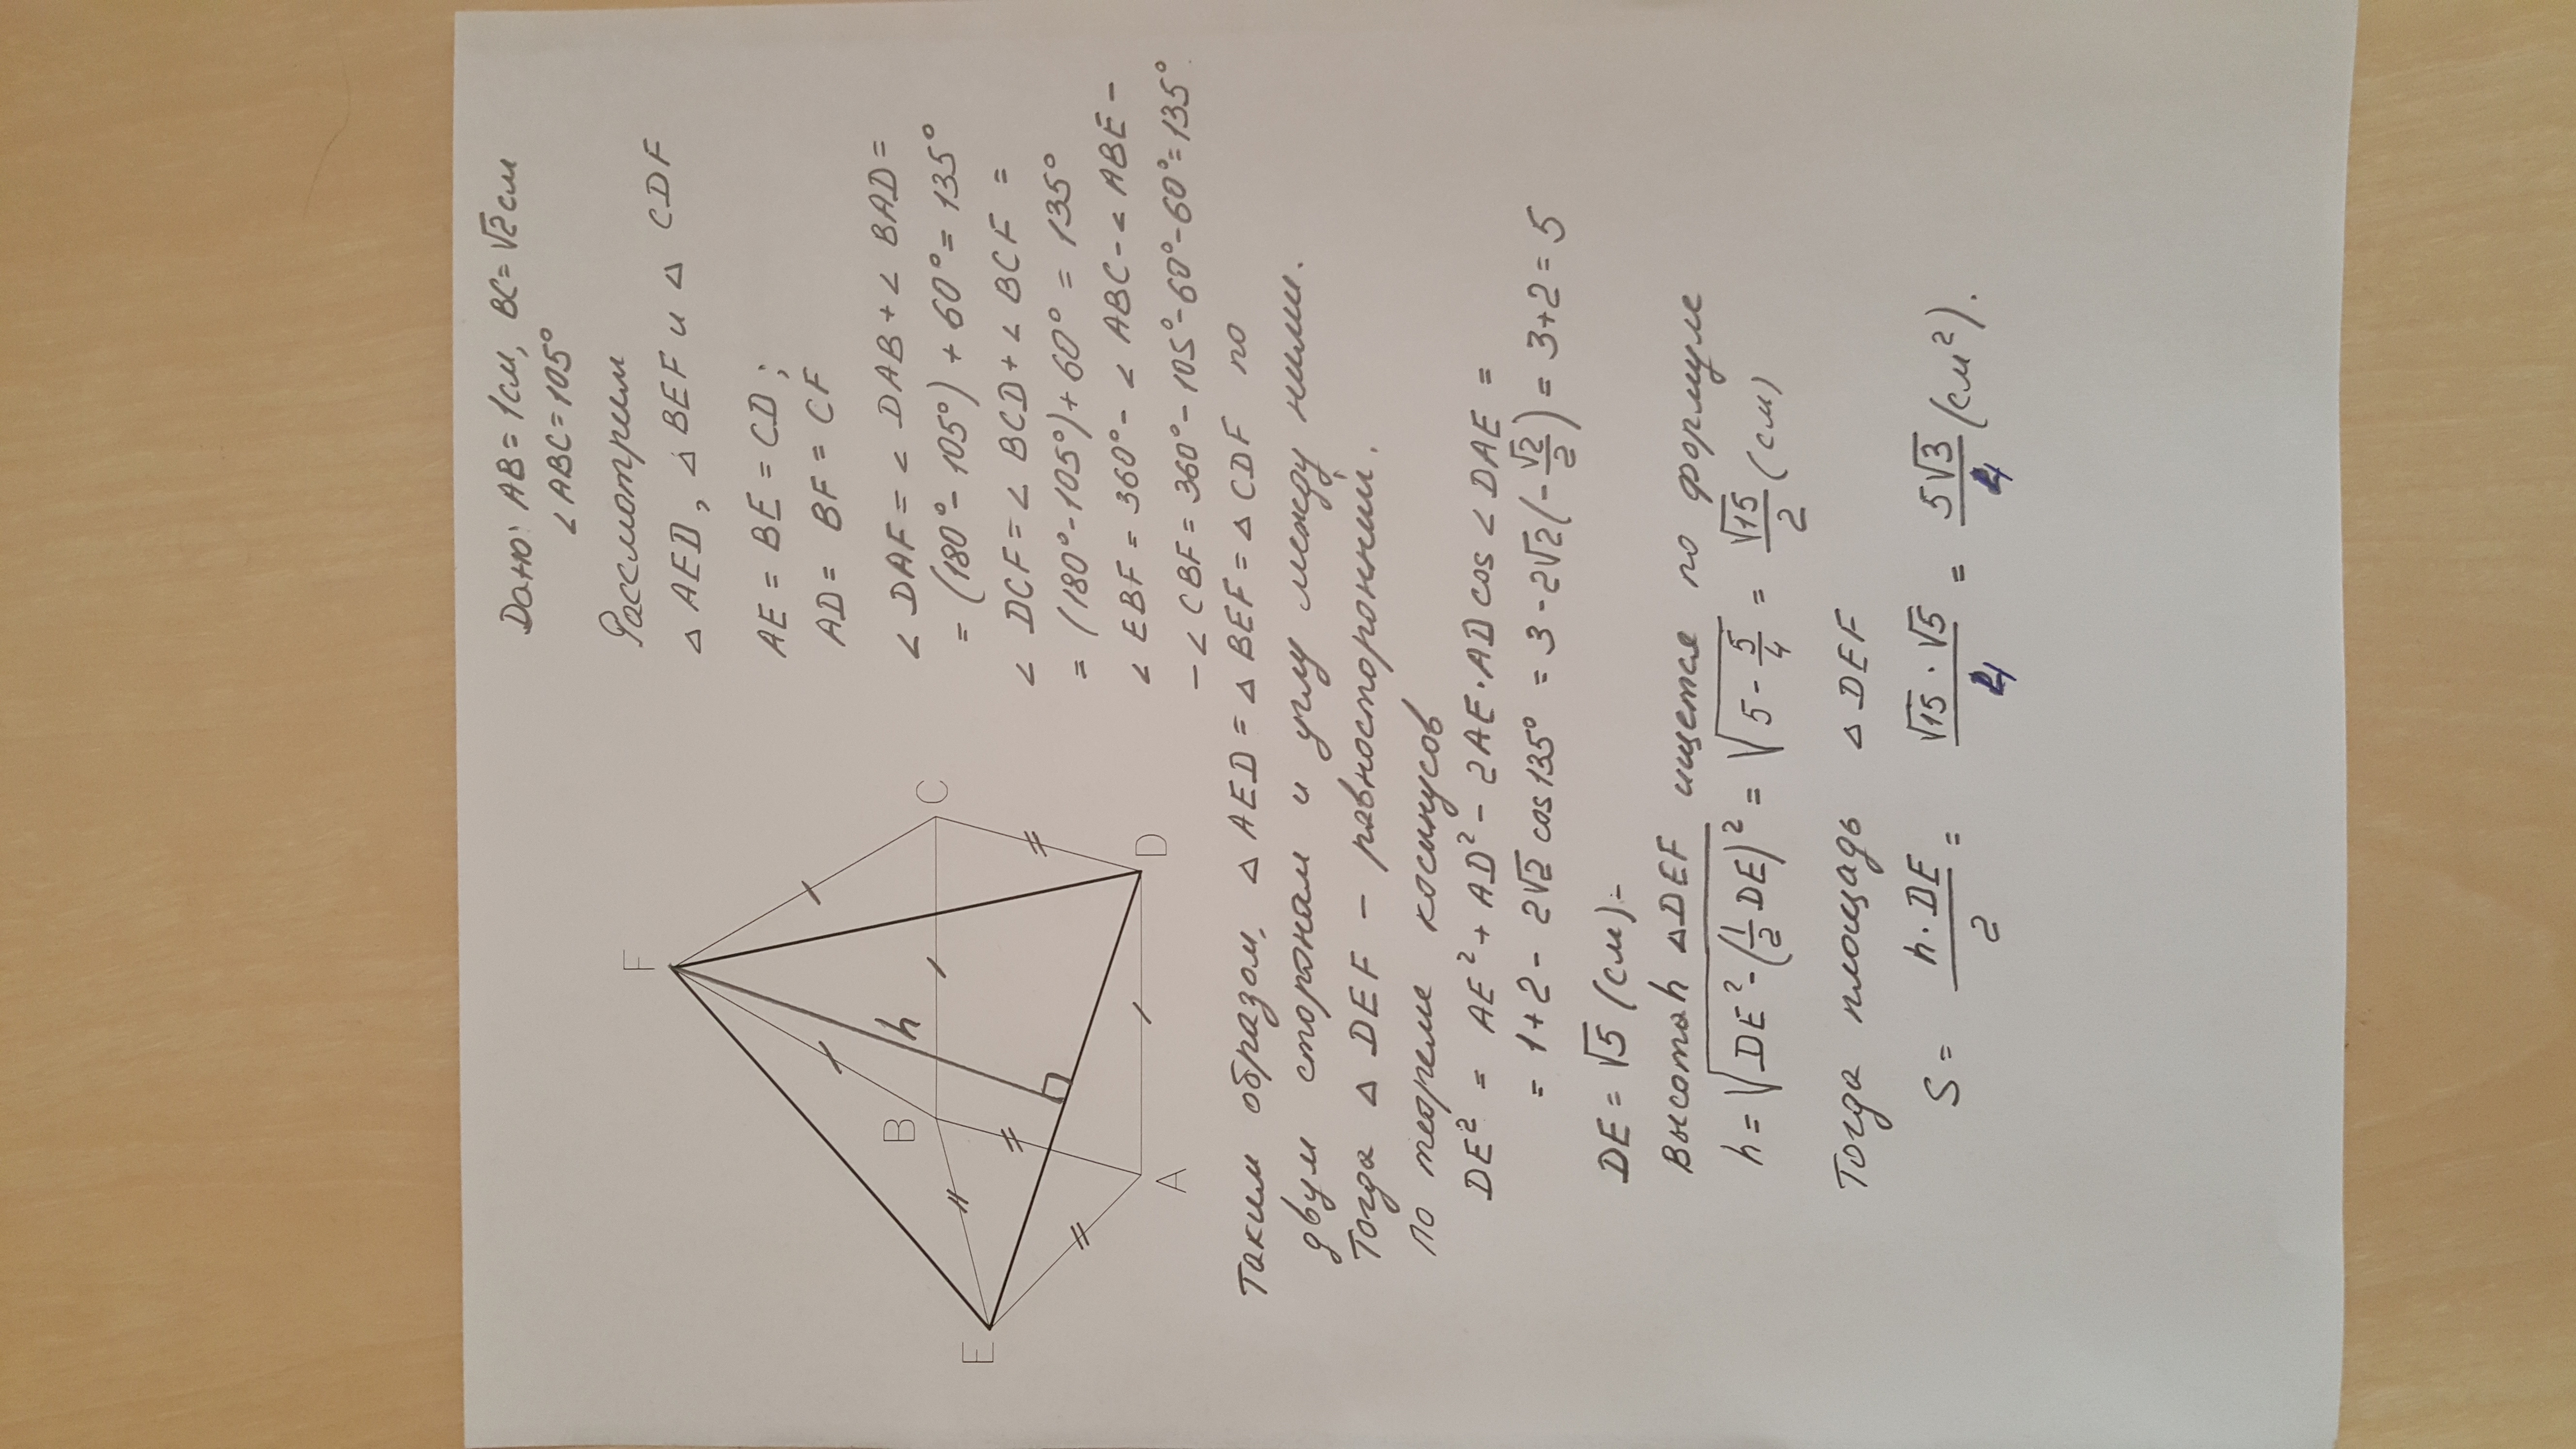 Дано: AB = 1 см, BC = √2 см
∠ ABC = 105°
Рассмотрим
△ AED, △ BEF и △ CDF
AE = BE = CD;
AD = BF = CF
∠ DAF = ∠ DAB + ∠ BAD =
= (180° - 105°) + 60° = 135°
∠ DCF = ∠ BCD + ∠ BCF =
= (180° - 105°) + 60° = 135°
∠ EBF = 360° - ∠ ABC - ∠ ABE -
- ∠ CBF = 360° - 105° - 60° - 60° = 135°
F
C
B
h
D
A
E
Таким образом, △ AED = △ BEF = △ CDF по
двум сторонам и углу между ними.
Тогда △ DEF – равносторонний.
По теореме косинусов
DE² = AE² + AD² - 2AE · AD cos ∠ DAE =
= 1 + 2 - 2√2 cos 135° = 3 - 2√2 (-√2/2) = 3 + 2 = 5
DE = √5 (см) -
Высота h △DEF ищется по формуле
h = √(DE² - (1/2 DE)²) = √(5 - 5/4) = √15/2 (см)
Тогда площадь △ DEF
S = h · DE / 2 = √15 · √5 / 4 = 5√3 / 4 (см²).